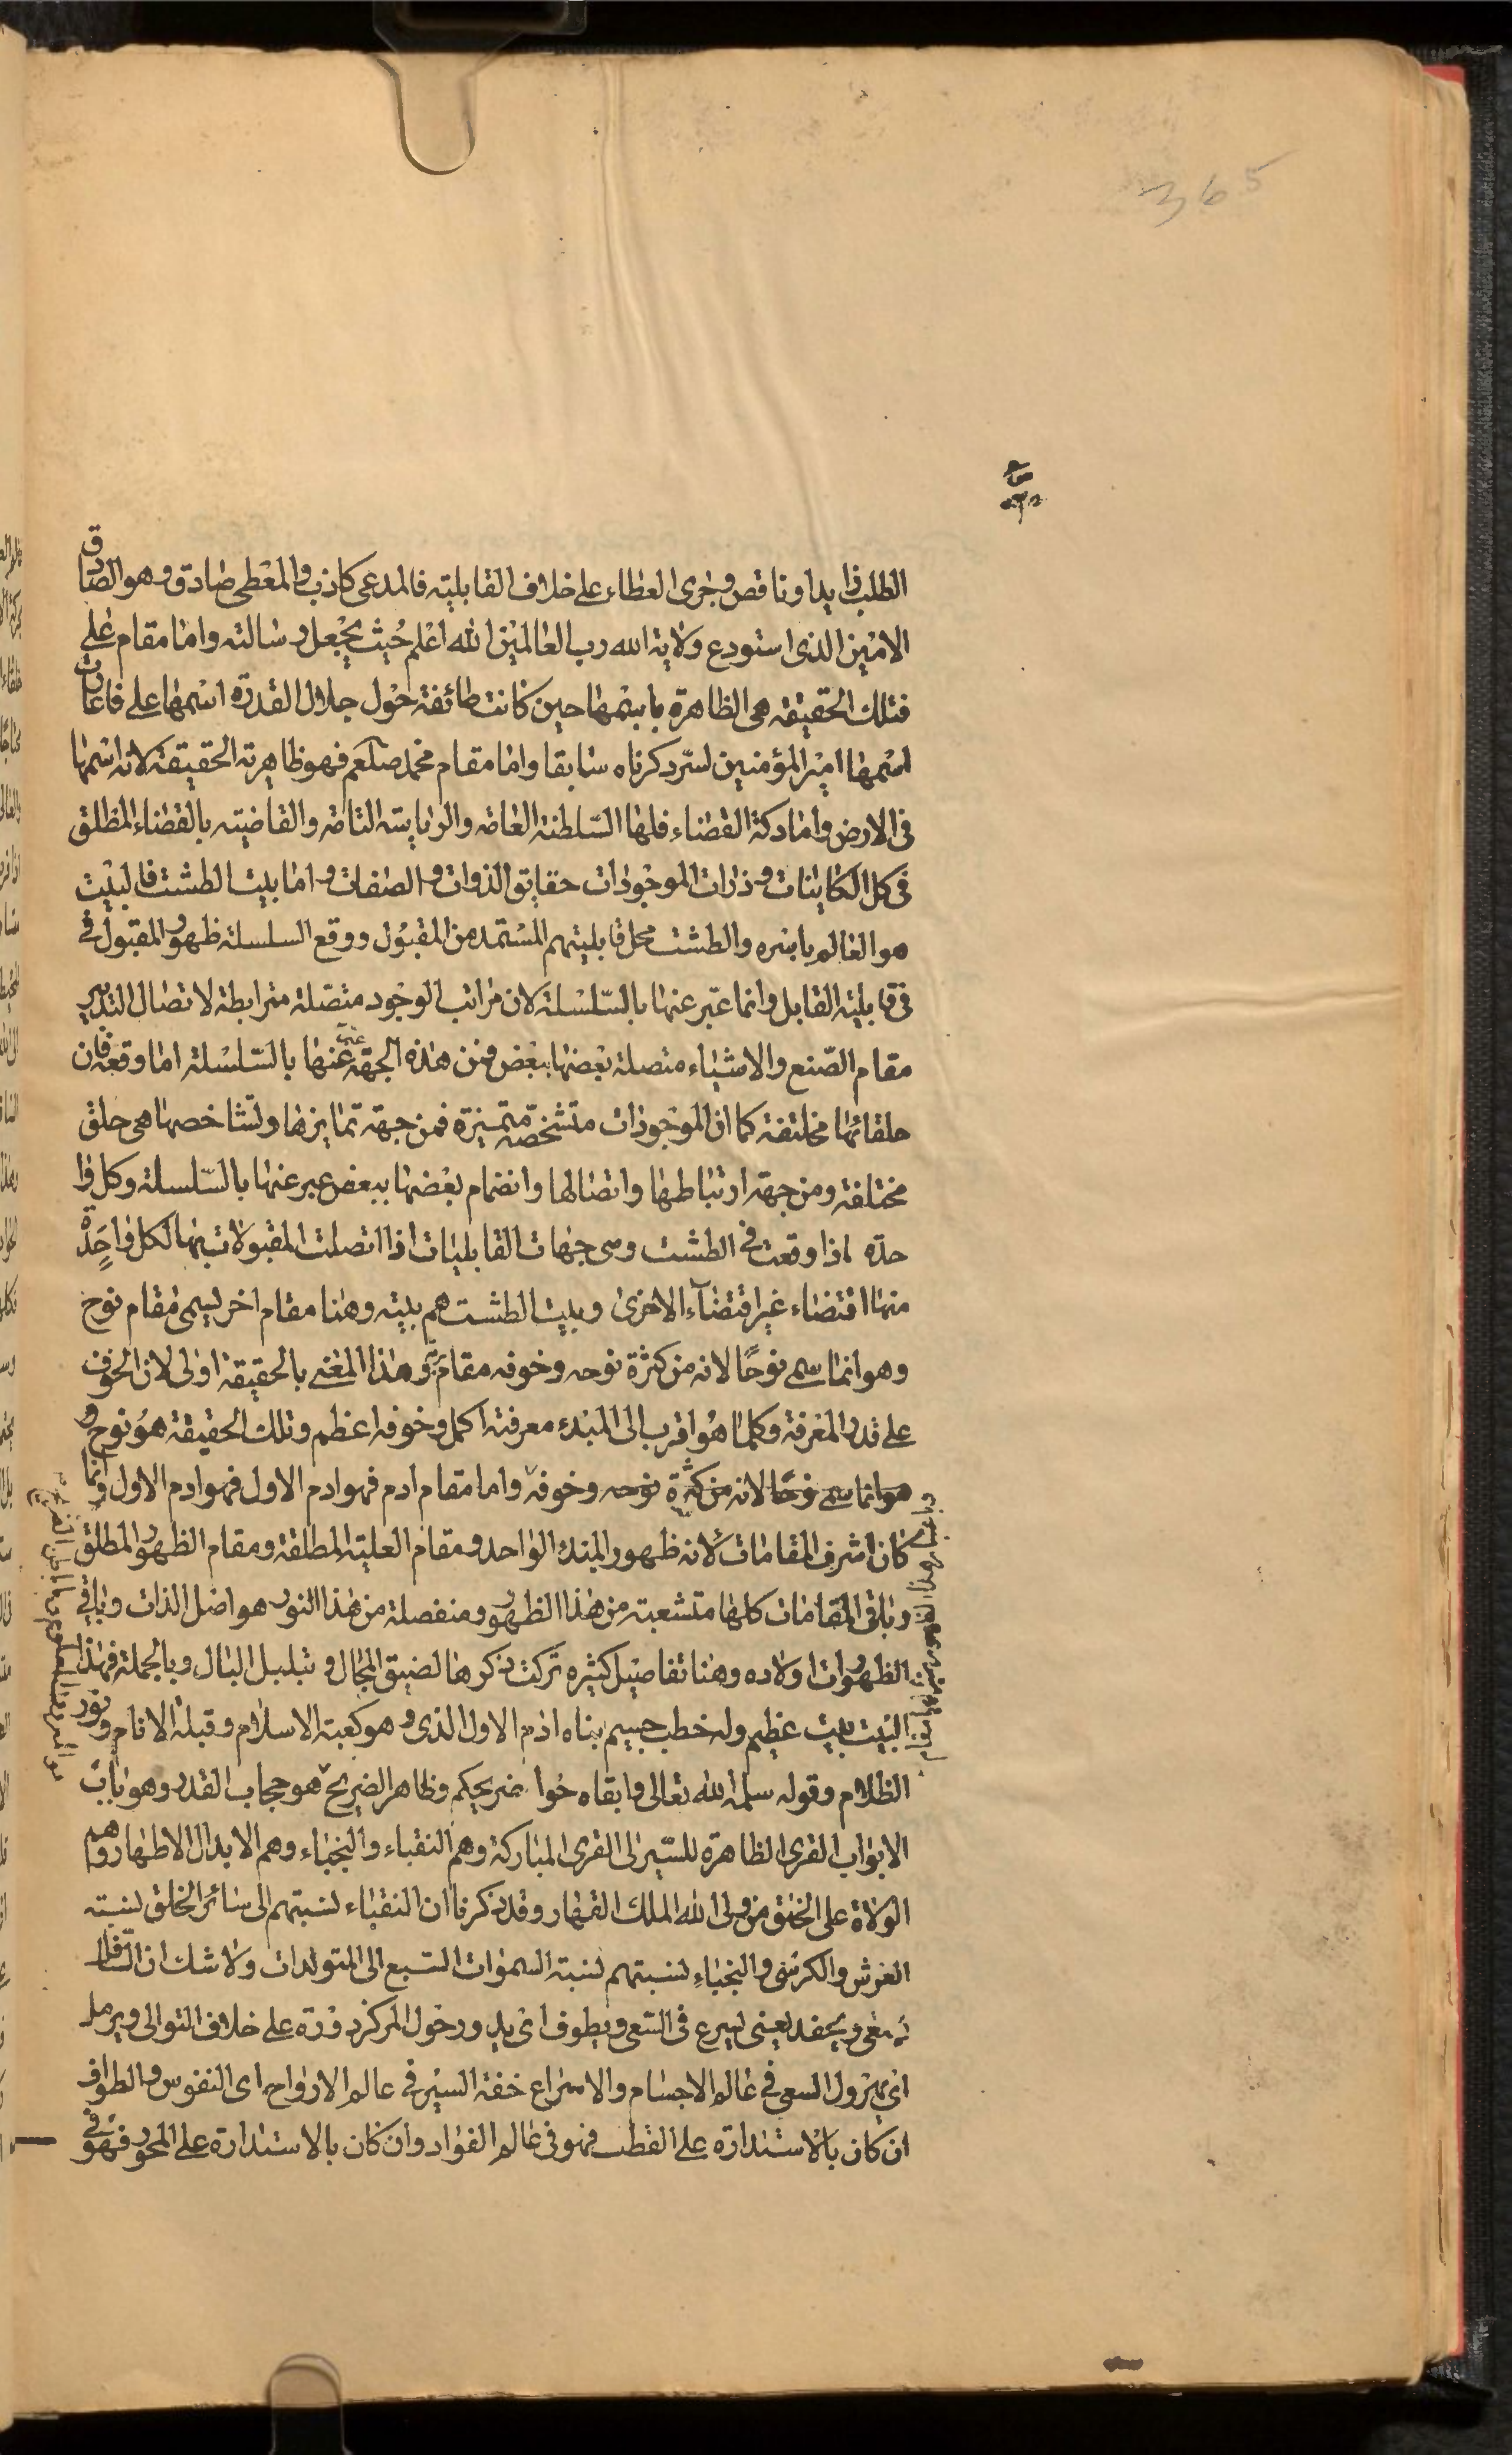 365
الطلب زايدا وناقص وجرى العطاء على خلاف القابليته فالمدعى كاذب والمعطى صادق وهو الصادق
الامين الذى استودع ولاية الله رب العالمين الله اعلم حيث يجعل رسالته واما مقام على
فتلك الحقيقه هى الظاهرة باسمها حين كانت طائفة حول جلال القدرة اسمها على فاعان
اسمها امير المؤمنين لسر ذكرناه سابقا واما مقام محمد صلعم فهو ظاهرية الحقيقة لانه اسمها
فى الارض واما دكة القضاء فلها السلطنة العامه والولاية التامه والقاضيته بالقضاء المطلق
فى كل الكاينات وذرات الموجودات حقايق الذوات والصفات واما بيت الطشت فالبيت
هو العالم باسره والطشت محل قابليتهم المستمد من المقبول ووقع السلسلة ظهور المقبول فى
فى قابلية القابل وانما عبر عنها بالسلسلة لان مراتب الوجود متصلة مترابطة لاتصال التدبير
مقام الصنع والاشياء متصلة بعضها ببعض فمن هذه الجهة عبر عنها بالسلسلة اما وقعه فان
حلقاتها مختلفة كما ان الموجودات متشخصة متميزة فمن جهة تمايزها وتشاخصها هى حلق
مختلفة ومن جهة ارتباطها واتصالها وانضمام بعضها ببعض عبر عنها بالسلسلة وكل وا
حدة اذا وقعت فى الطشت وهى جهات القابليات اذا اتصلت المقبولات بها لكل واحدة
منها اقتضاء غير اقتضآء الاخرى وبيت الطشت هم بيته وهنا مقام اخر ليسمى مقام نوح
وهو انما سمى نوحًا لانه من كثرة نوحه وخوفه مقام ربه وهذا المعنى بالحقيقة اولى لان الخوف
على قدر المعرفة وكلما هو اقرب الى المبدء معرفته اكمل وخوفه اعظم وتلك الحقيقة هو نوح و
هو انما سمى نوحًا لانه من كثرة نوحه وخوفه واما مقام ادم فهو ادم الاول فهو ادم الاول وانما
كان اشرف المقامات لانه ظهور المبدء الواحد ومقام العلية المطلقة ومقام الظهور المطلق
وباقى المقامات كلها متشعبة من هذا الظهور ومنفصلة من هذا النور هو اصل الذات وباقى
الظهورات اولاده وهنا تفاصيل كثيره تركت ذكرها لضيق المجال وتبلبل البال وبالجملة فهذا
البيت بيت عظيم وله خطب جسيم بناه ادم الاول الذى وهو كعبة الاسلام وقبلة الانام ونور
الظلام وقوله سلمه الله تعالى وابقاه ضريحكم وظاهر الضريح هو حجاب القدر وهو باب
الابواب القرى الظاهرة للسير الى القرى المباركة وهم النقباء والنجباء وهم الابدال الاطهار وهم
الولاة على الخلق من ولى الله الملك القهار وقد ذكرنا ان النقباء نسبتهم الى سائر الخلق نسبته
العرش والكرسى والنجباء نسبتهم نسبة السموات السبع الى المتولدات ولا شك ان السافل
يسعى ويحفد يعنى يسرع فى السعى ويطوف اى يدور حول المركز دورة على خلاف التوالى ويرمل
اى يهرول السعى فى عالم الاجسام والاسراع خفة السير فى عالم الارواح اى النفوس والطواف
ان كان بالاستدارة على القطب فهو فى عالم الفواد وان كان بالاستدارة على المحور فهو فى